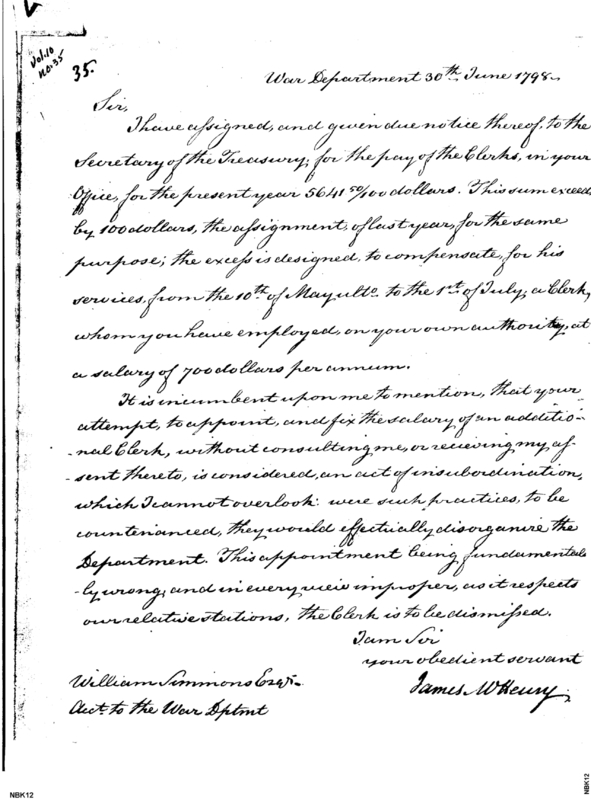 Vol.10
no.35
35.
War Department 30th June 1798.
Sir,
I have assigned, and given due notice thereof, to the
Secretary of the Treasury, for the pay of the Clerks, in your
Office, for the present year 5641 50/100 dollars. This sum exceeds
by 100 dollars, the assignment, of last year, for the same
purpose; the excess is designed, to compensate, for his
services, from the 10th of May ulto. to the 1st of July, a Clerk,
whom you have employed, on your own authority, at
a salary of 700 dollars per annum.
It is incumbent upon me to mention, that your
attempt, to appoint, and fix the salary of an additio-
-nal Clerk, without consulting me, or receiving my as-
-sent thereto, is considered, an act of insubordination,
which I cannot overlook: were such practices, to be
countenanced, they would effectually disorganize the
Department. This appointment being fundamental-
-ly wrong, and in every view improper, as it respects
our relative stations, the Clerk is to be dismissed.
I am Sir
your obedient servant
James McHenry
William Simmons Esqr.
Acct. to the War Dptmt
NBK12
NBK12